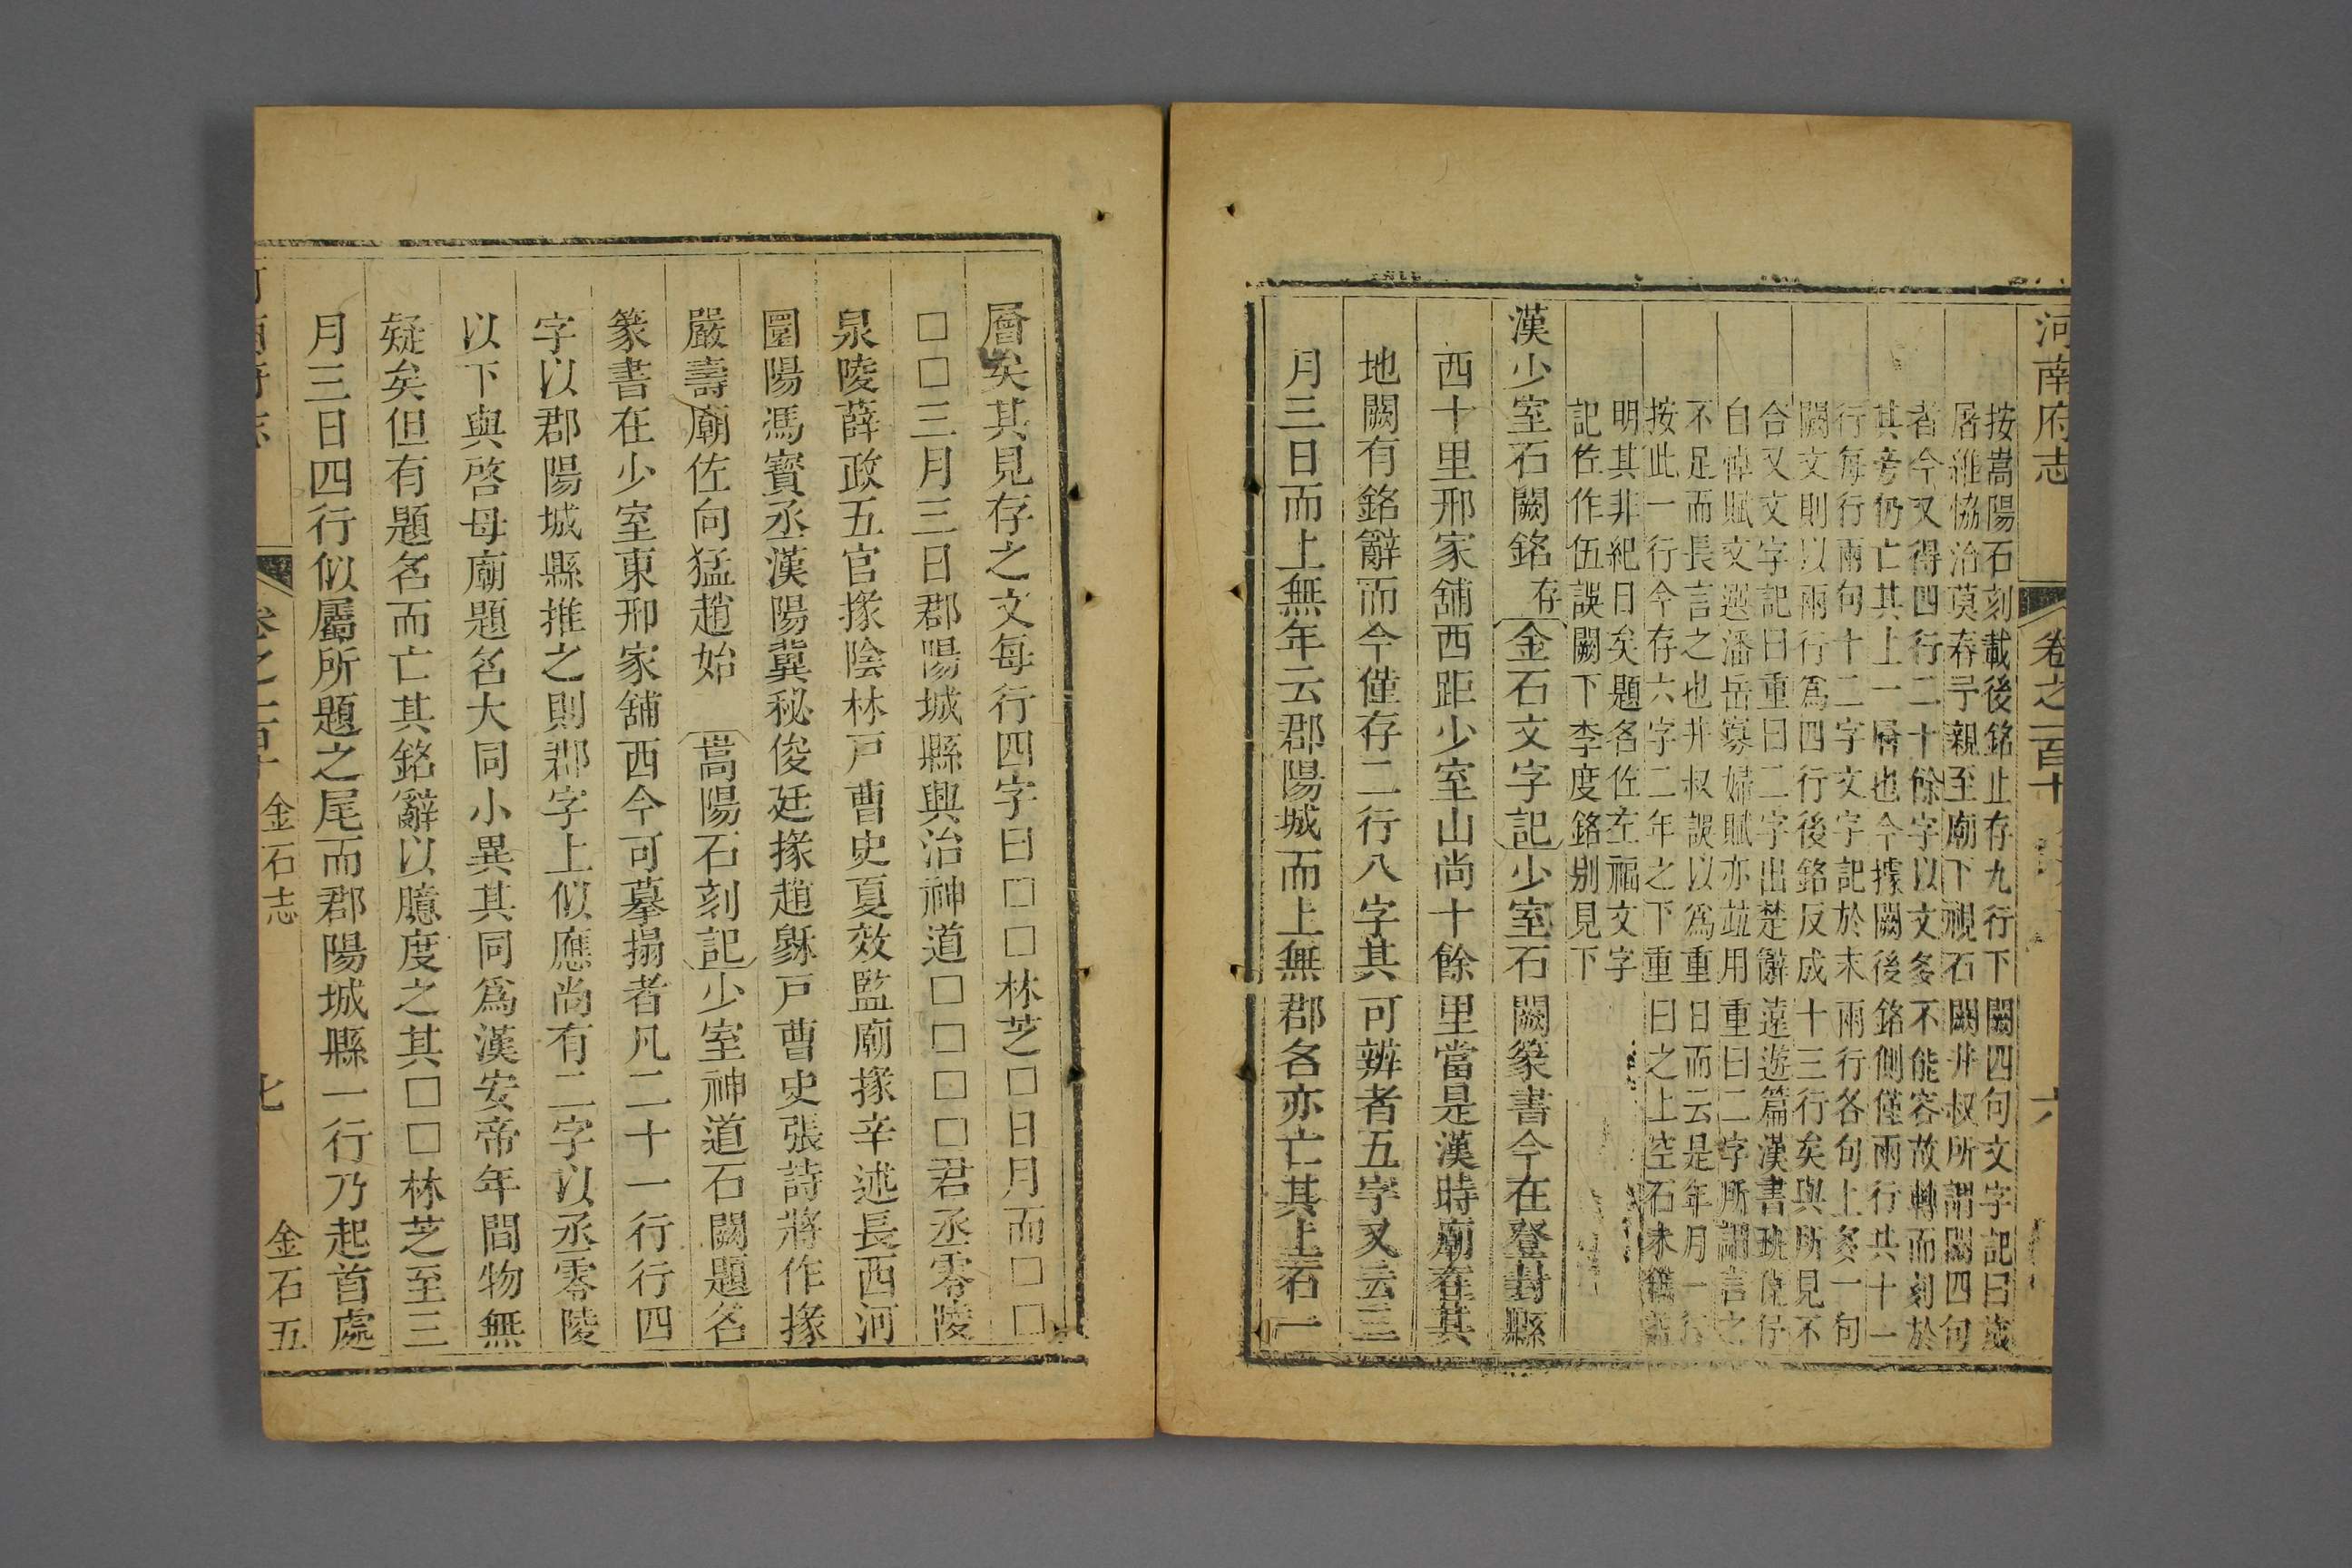 河南府志 卷之一百十 六
按嵩陽石刻載後銘止存九行下闕四句文字記曰歲
屠維協洽莫春予親至廟下視石闕井叔所謂闕四句
者今又得四行二十餘字以文多不能容故轉而刻於
其旁仍亡其上一層也今據闕後銘側僅兩行共十一
行每行兩句十二字文字記於末兩行各句上多一句
闕文則以兩行為四行後銘反成十三行矣與所見不
合又文字記曰重曰二字出楚辭遠遊篇漢書班倢伃
自悼賦文選潘岳寡婦賦亦並用重曰二字所謂言之
不足而長言之也井叔誤以為重日而云是年月一行
按此一行今存六字二年之下重曰之上空石未鐫
明其非紀日矣題名佐左福文字
記佐作伍誤闕下李度銘別見下
漢少室石闕銘 存 金石文字記 少室石闕篆書今在登封縣
西十里邢家舖西距少室山尚十餘里當是漢時廟在其
地闕有銘辭而今僅存二行八字其可辨者五字又云三
月三日而上無年云郡陽城而上無郡名亦亡其上石一
層矣其見存之文每行四字曰□□林芝□日月而□□
□□三月三日郡陽城縣興治神道□□□□君丞零陵
泉陵薛政五官掾陰林戸曹史夏效監廟掾辛述長西河
圜陽馮寳丞漢陽冀秘俊廷掾趙穌戸曹史張詩將作掾
嚴壽廟佐向猛趙始 嵩陽石刻記 少室神道石闕題名
篆書在少室東邢家舖西今可摹搨者凡二十一行行四
字以郡陽城縣推之則郡字上似應尚有二字以丞零陵
以下與啓母廟題名大同小異其同為漢安帝年間物無
疑矣但有題名而亡其銘辭以臆度之其□□林芝至三
月三日四行似屬所題之尾而郡陽城縣一行乃起首處
卷之一百十 金石志 七 金石五